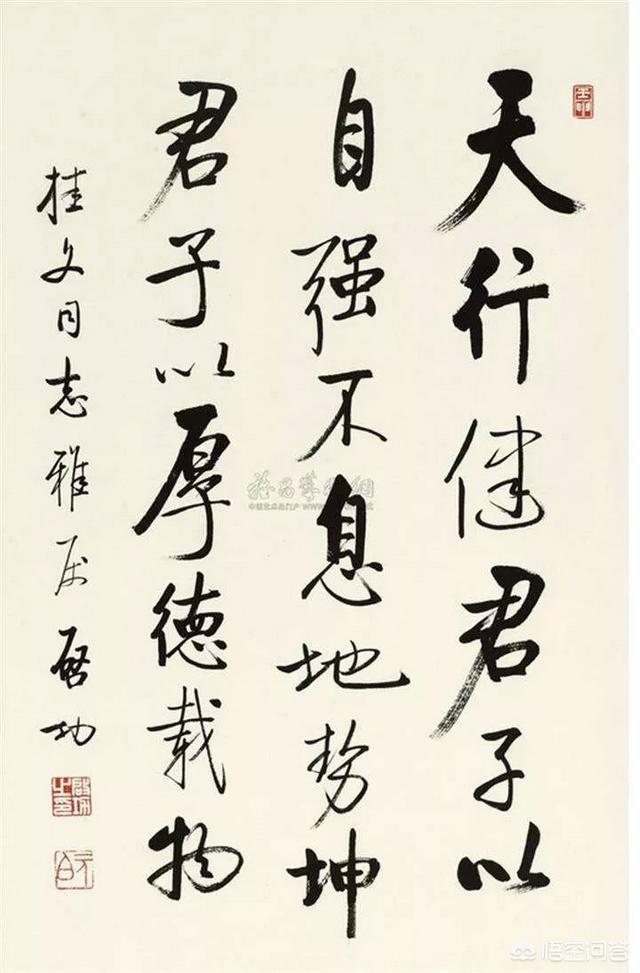 天行健君子以
自强不息地势坤
君子以厚德载物
桂文同志雅属 启功
悟空问答